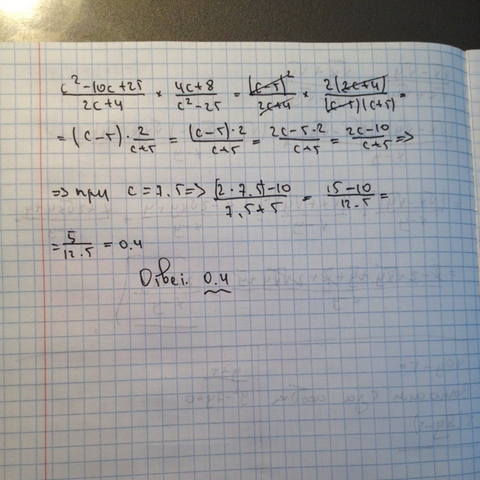 c²-10c+25/2c+4 × 4c+8/c²-25 = (c-5)²/2c+4 × 2(2c+4)/(c-5)(c+5) =
= (c-5)·2/c+5 = (c-5)·2/c+5 = 2c-5·2/c+5 = 2c-10/c+5 =>
=> при c=7.5 => (2·7.5)-10/7.5+5 = 15-10/12.5 =
= 5/12.5 = 0.4
Ответ: 0.4